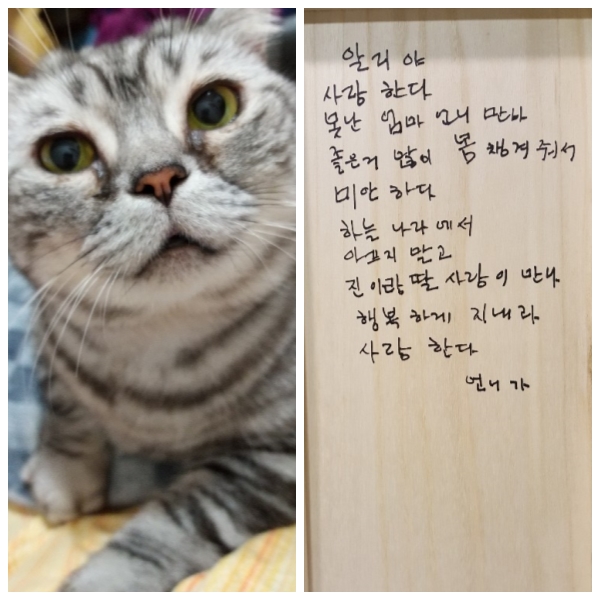 알리야
사랑 한다
못난 엄마 언니 만나
좋은거 많이 못 챙겨줘서
미안 하다
하늘 나라에서
아프지 말고
진이랑 딸 사랑이 만나
행복 하게 지내라
사랑 한다
언니가